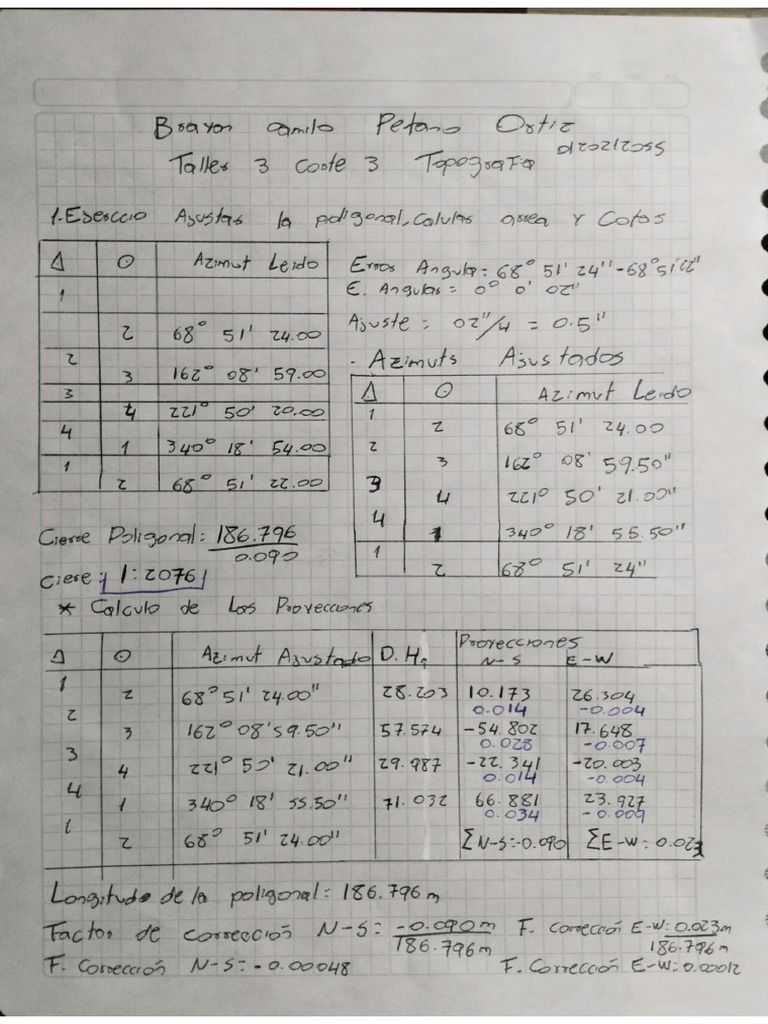 Brayan Camilo Petano Ortiz
Taller 3 Corte 3 Topografia
1. Eserccio Ajustar la poligonal, Calular area y Cotas
Δ O Azimut Leido
1
2 68° 51' 24.00
2
3 162° 08' 59.00
3
4 221° 50' 20.00
4
1 340° 18' 54.00
1
2 68° 51' 22.00
Error Angular= 68° 51' 24"-68°51'22"
E. Angular= 0° 0' 02"
Ajuste = 02"/4 = 0.5"
- Azimuts Ajustados
Δ O Azimut Leido
1
2 68° 51' 24.00
2
3 162° 08' 59.50"
3
4 221° 50' 21.00"
4
1 340° 18' 55.50"
1
2 68° 51' 24"
Cierre Poligonal= 186.796
0.090
Ciere: 1:2076
* Calculo de Las Proyecciones
Δ O Azimut Ajustado D.H. Proyecciones
N-S E-W
1
2 68°51'24.00" 28.203 10.173 26.304
0.014 -0.004
2
3 162°08'59.50" 57.574 -54.802 17.648
0.028 -0.007
3
4 221° 50' 21.00" 29.987 -22.341 -20.003
0.014 -0.004
4
1 340° 18' 55.50" 71.032 66.881 23.927
0.034 -0.009
1
2 68° 51' 24.00" ΣN-S=-0.090 ΣE-W=0.023
Longitud de la poligonal= 186.796 m
Factor de correccion N-S= -0.090m F. Correccion E-W=0.023m
186.796m 186.796m
F. Corrección N-S=-0.00048 F. Corrección E-W=0.00012